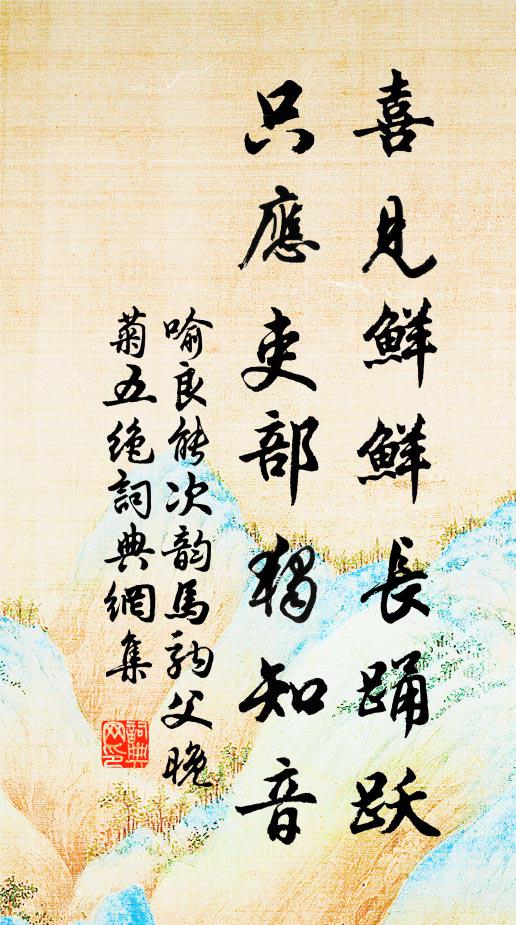 喜見鮮鮮長踊跃
只應吏部獨知音
喻良能次韵馬駒父晚
菊五絶詞典網集
詞典网印